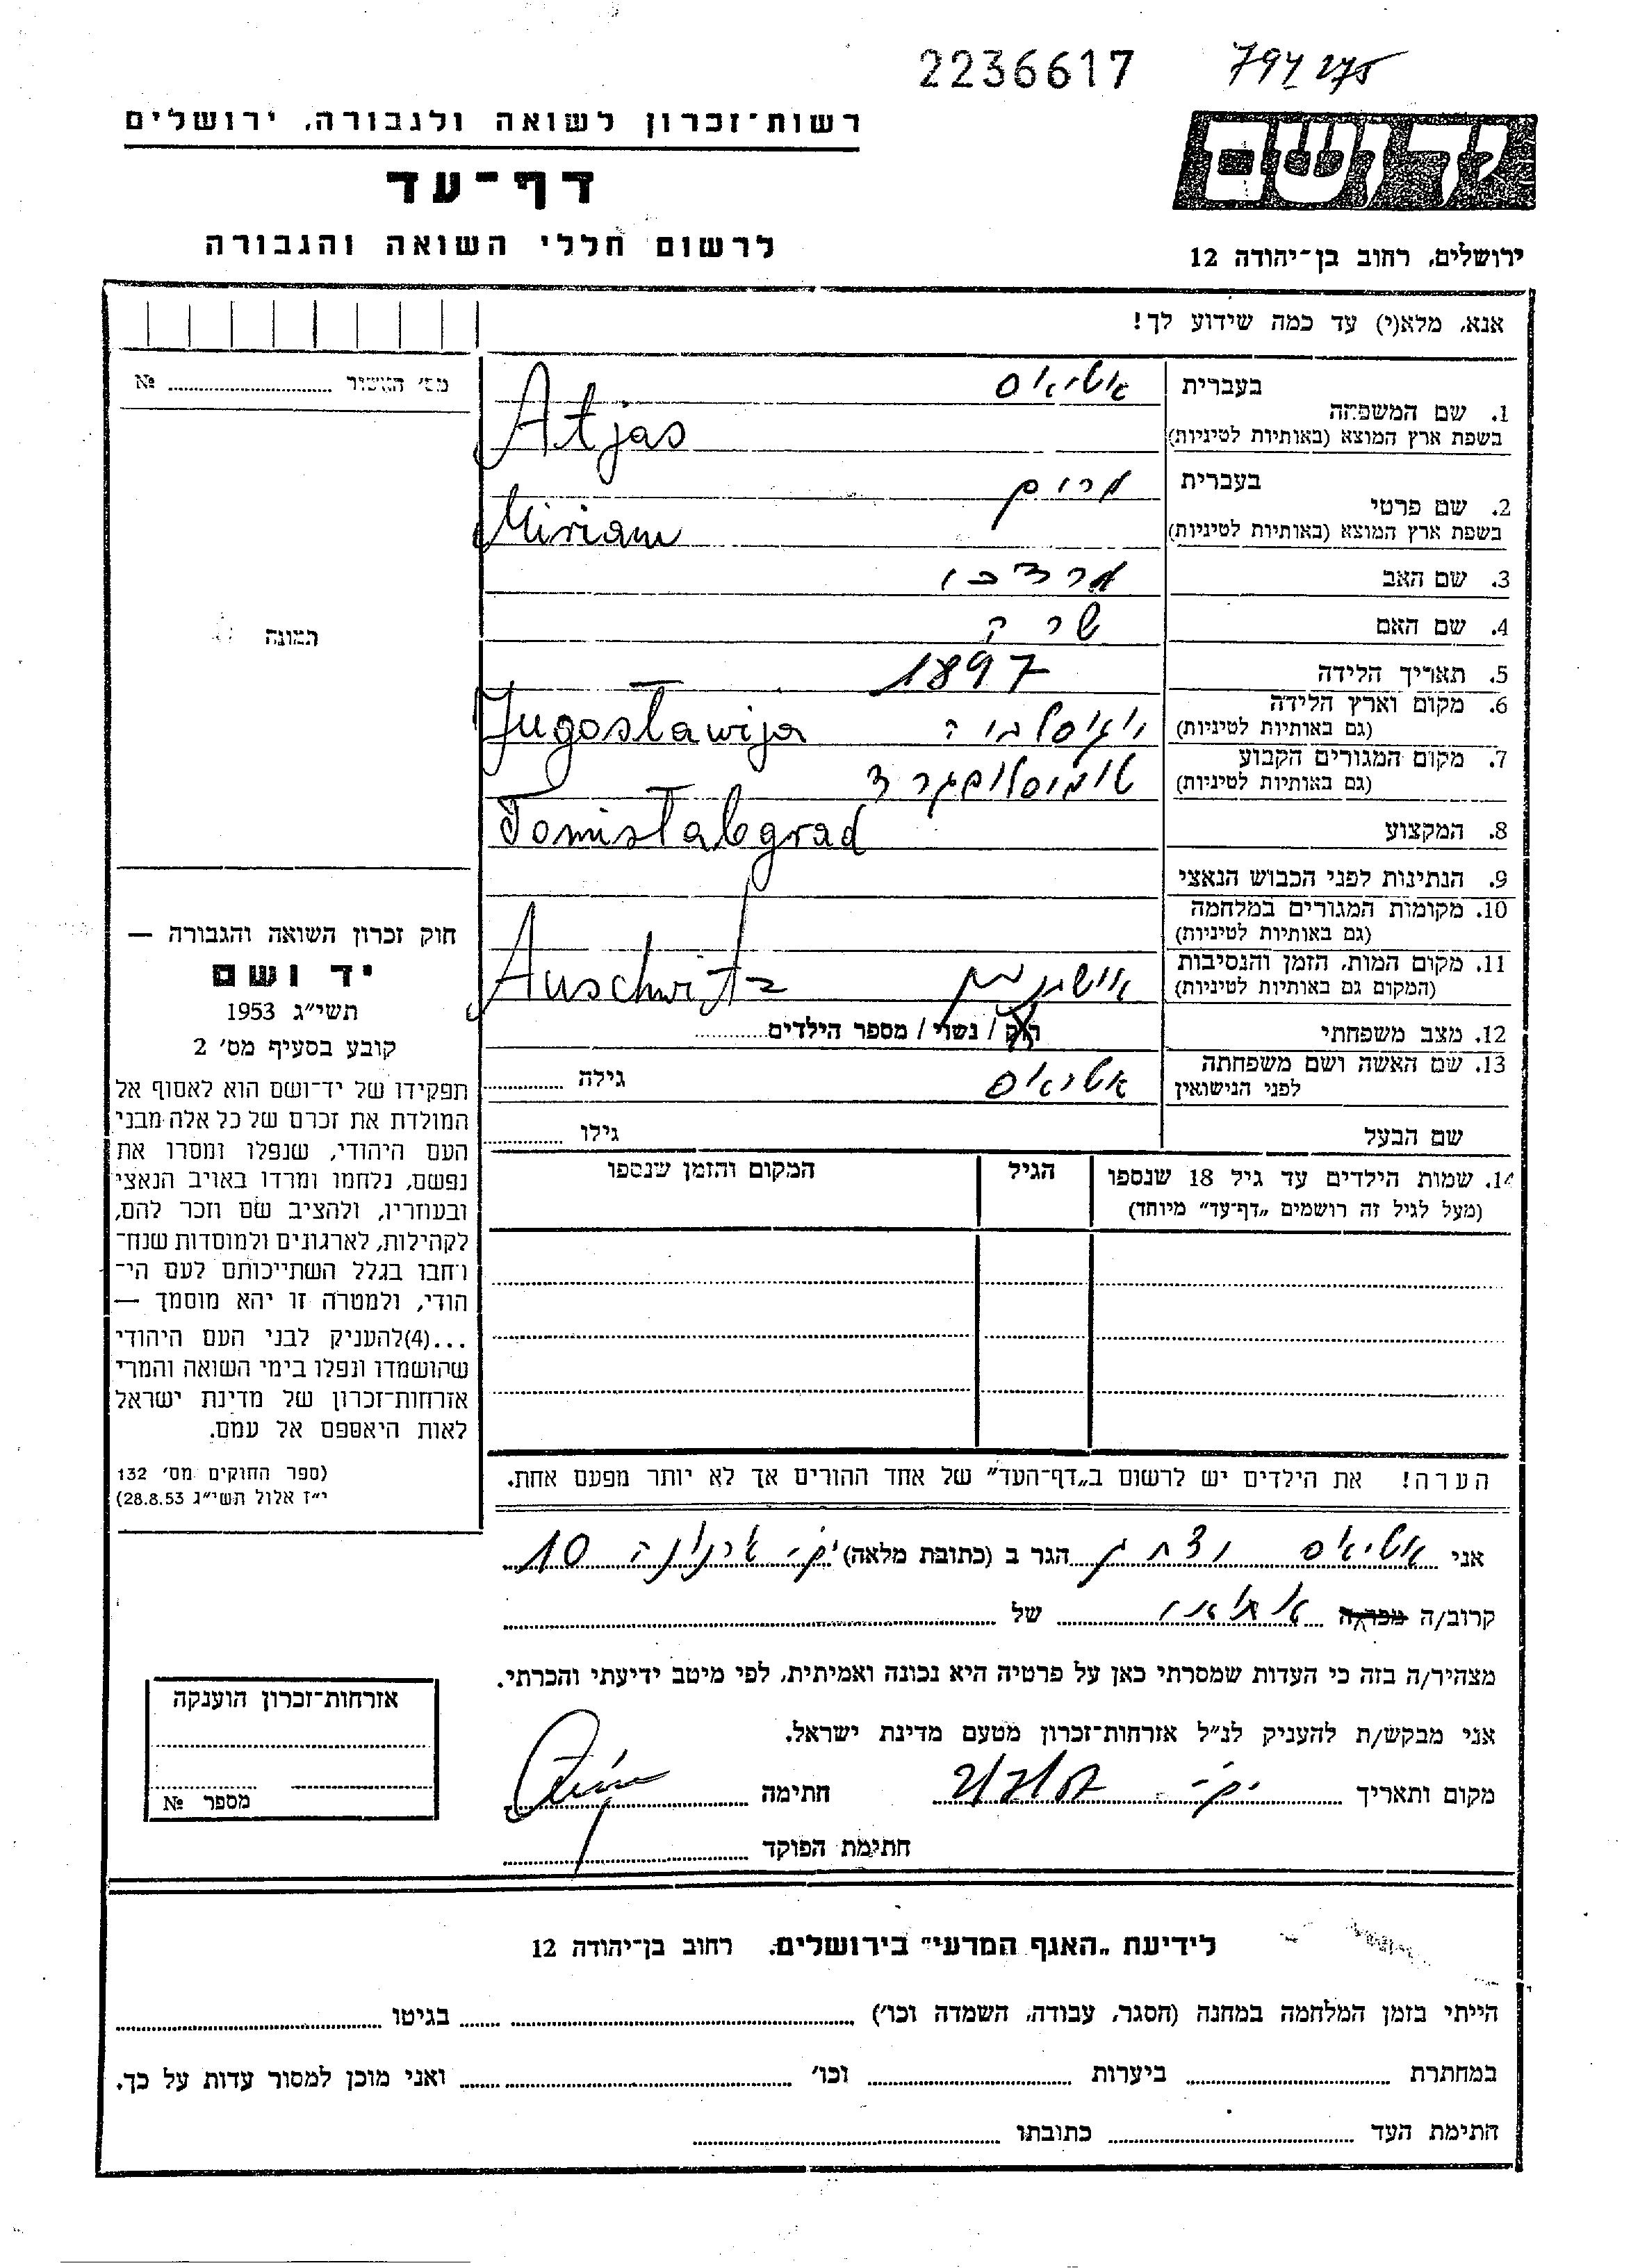 2236617
רשות־זכרון לשואה ולגבורה, ירושלים
ד ף ־ ע ד
לרשום חללי השואה והגבורה
ידושם
ירושלים, רחוב בן־יהודה 12
אנא, מלא(י) עד כמה שידוע לך!
מס' האשור № ..........
1. שם המשפחה
בעברית אטיאס
בשפת ארץ המוצא (באותיות לטיניות) Atjas
2. שם פרטי
בעברית מרים
בשפת ארץ המוצא (באותיות לטיניות) Miriam
3. שם האב מרדכי
4. שם האם שרה
5. תאריך הלידה 1897
6. מקום וארץ הלידה
(גם באותיות לטיניות) יוגוסלביה Jugoslawija
7. מקום המגורים הקבוע
(גם באותיות לטיניות) Tomislabgrad
8. המקצוע
9. הנתינות לפני הכבוש הנאצי
10. מקומות המגורים במלחמה
(גם באותיות לטיניות)
11. מקום המות, הזמן והנסיבות
(המקום גם באותיות לטיניות) Auschwitz
12. מצב משפחתי רוק / נשוי / מספר הילדים ..........
13. שם האשה ושם משפחתה
לפני הנישואין אטיאס גילה ..........
שם הבעל גילו ..........
14. שמות הילדים עד גיל 18 שנספו
(מעל לגיל זה רושמים „דף־עד" מיוחד)
הגיל
המקום והזמן שנספו
תמונה
חוק זכרון השואה והגבורה —
יד ושם
תשי"ג 1953
קובע בסעיף מס' 2
תפקידו של יד־ושם הוא לאסוף אל
המולדת את זכרם של כל אלה מבני
העם היהודי, שנפלו ומסרו את
נפשם, נלחמו ומרדו באויב הנאצי
ובעוזריו, ולהציב שם וזכר להם,
לקהילות, לארגונים ולמוסדות שנח־
רבו בגלל השתייכותם לעם הי־
הודי, ולמטרה זו יהא מוסמך —
...(4) להעניק לבני העם היהודי
שהושמדו ונפלו בימי השואה והמרי
אזרחות־זכרון של מדינת ישראל
לאות היאספם אל עמם.
(ספר החוקים מס' 132
י"ז אלול תשי"ג 28.8.53)
הערה! את הילדים יש לרשום ב„דף־העד" של אחד ההורים אך לא יותר מפעם אחת.
אני אטיאס יצחק הגר ב (כתובת מלאה) 10
קרוב/ה מכר/ה .......... של ..........
מצהיר/ה בזה כי העדות שמסרתי כאן על פרטיה היא נכונה ואמיתית, לפי מיטב ידיעתי והכרתי.
אני מבקש/ת להעניק לנ"ל אזרחות־זכרון מטעם מדינת ישראל.
מקום ותאריך .......... חתימה ..........
חתימת הפוקד ..........
אזרחות־זכרון הוענקה
מספר №
לידיעת „האגף המדעי" בירושלים, רחוב בן־יהודה 12
הייתי בזמן המלחמה במחנה (הסגר, עבודה, השמדה וכו') .......... בגיטו ..........
במחתרת .......... ביערות .......... וכו' .......... ואני מוכן למסור עדות על כך.
חתימת העד .......... כתובתו ..........